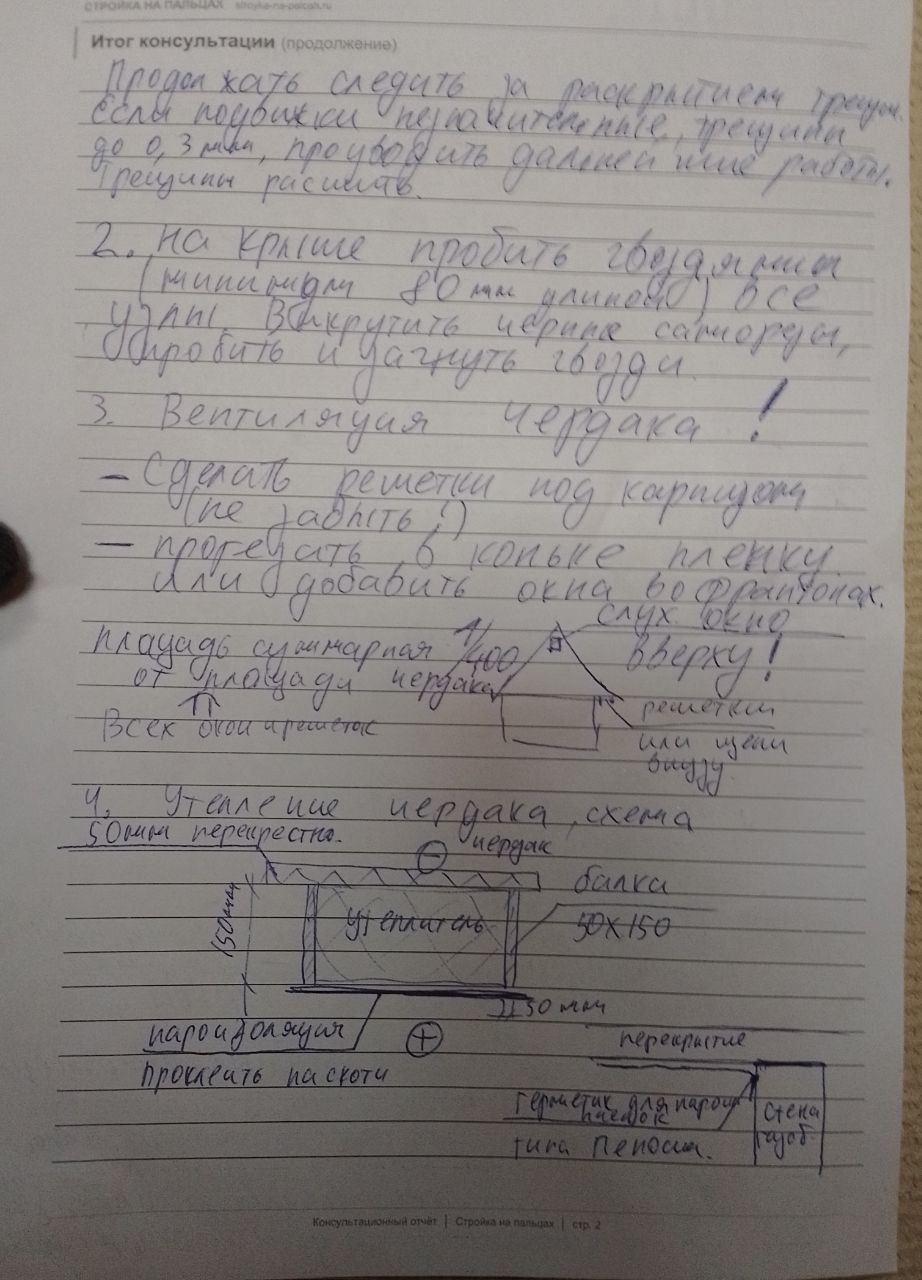 СТРОЙКА НА ПАЛЬЦАХ stroyka-na-palcah.ru
Итог консультации (продолжение)
Продолжать следить за раскрытием трещин.
Если подвижки незначительные, трещины
до 0,3 мм, производить дальнейшие работы.
Трещины расшить.
2. На крыше пробить гвоздями
(минимум 80 мм длиной) все
узлы. Выкрутить черные саморезы,
пробить и загнуть гвозди.
3. Вентиляция чердака!
- Сделать решетки под карнизом
(не забыть!)
- прорезать в коньке пленку
или добавить окна во фронтонах.
слух. окно
вверху!
площадь суммарная 1/400
от площади чердака
Всех окон и решеток
решетки
или щели
внизу
4. Утепление чердака, схема
50мм перекрестно.
чердак
балка
150мм
утеплитель
50х150
50 мм
пароизоляция
проклеить на скотч
перекрытие
Герметик для пароиз
пленок
типа Пеносил.
стена
газоб.
Консультационный отчёт | Стройка на пальцах | стр. 2